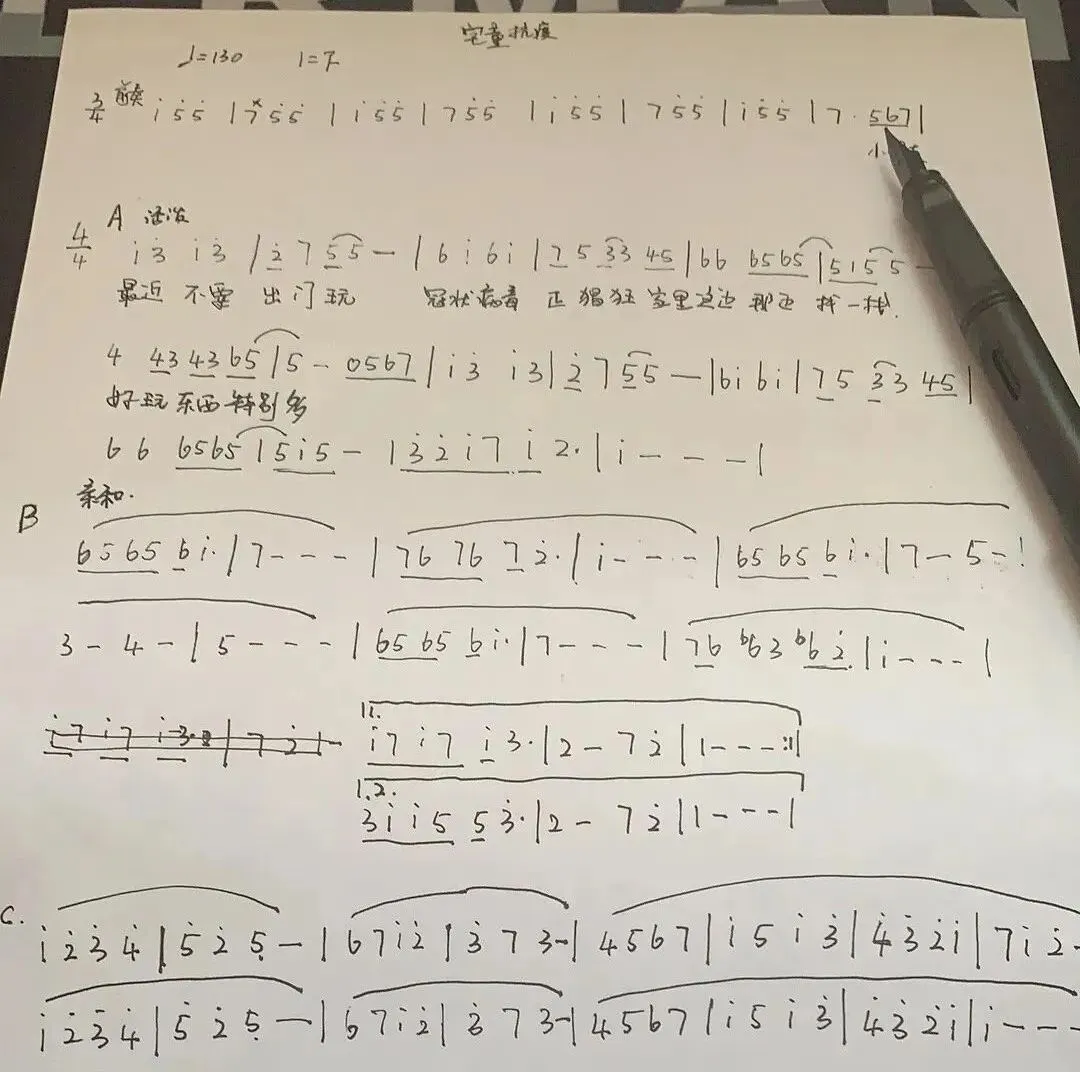 宅童抗疫
♩=130 1=F
3/4 前奏 i 5̇ 5̇ | 7 5̇ 5̇ | i 5̇ 5̇ | 7 5̇ 5̇ | i 5̇ 5̇ | 7 5̇ 5̇ | i 5̇ 5̇ | 7 · 567 |
A 活泼
4/4 i 3̇ i 3̇ | 2̇ 7 5 5 – | 6 i 6 i | 7 5 3 3 45 | 66 6565 | 5 1 5 5 –
最近 不要 出门玩 冠状病毒 正猖狂 家里这边 那边 找一找.
4 43 43 65 | 5 – 0567 | i 3̇ i 3̇ | 2̇ 7 5 5 — | 6i 6i | 7 5 3 3 45 |
好玩东西特别多
6 6 6565 | 5 i 5 – | 3̇ 2̇ i 7 i 2· | i – – – |
亲和.
B
6565 6 i· | 7 – – – | 76 76 7 2̇· | i – – – | 65 65 6 i· | 7 – 5 – |
3 – 4 – | 5 – – – | 65 65 6 i· | 7 – – – | 76 b63 b6 2̇· | i – – – |
1.
i7 i7 i 3· | 2 – 7 2̇ | 1 – – – :||
1.2.
3 i i 5 5 3̇· | 2 – 7 2̇ | 1 – – – |
C.
i 2̇ 3̇ 4̇ | 5̇ 2̇ 5 – | 6 7 i 2̇ | 3̇ 7 3 – | 4 5 6 7 | i 5 i 3̇ | 4̇ 3̇ 2̇ i | 7 i 2̇ -
i 2̇ 3̇ 4̇ | 5̇ 2̇ 5 – | 6 7 i 2̇ | 3̇ 7 3 – | 4 5 6 7 | i 5 i 3̇ | 4̇ 3̇ 2̇ i | i – – –